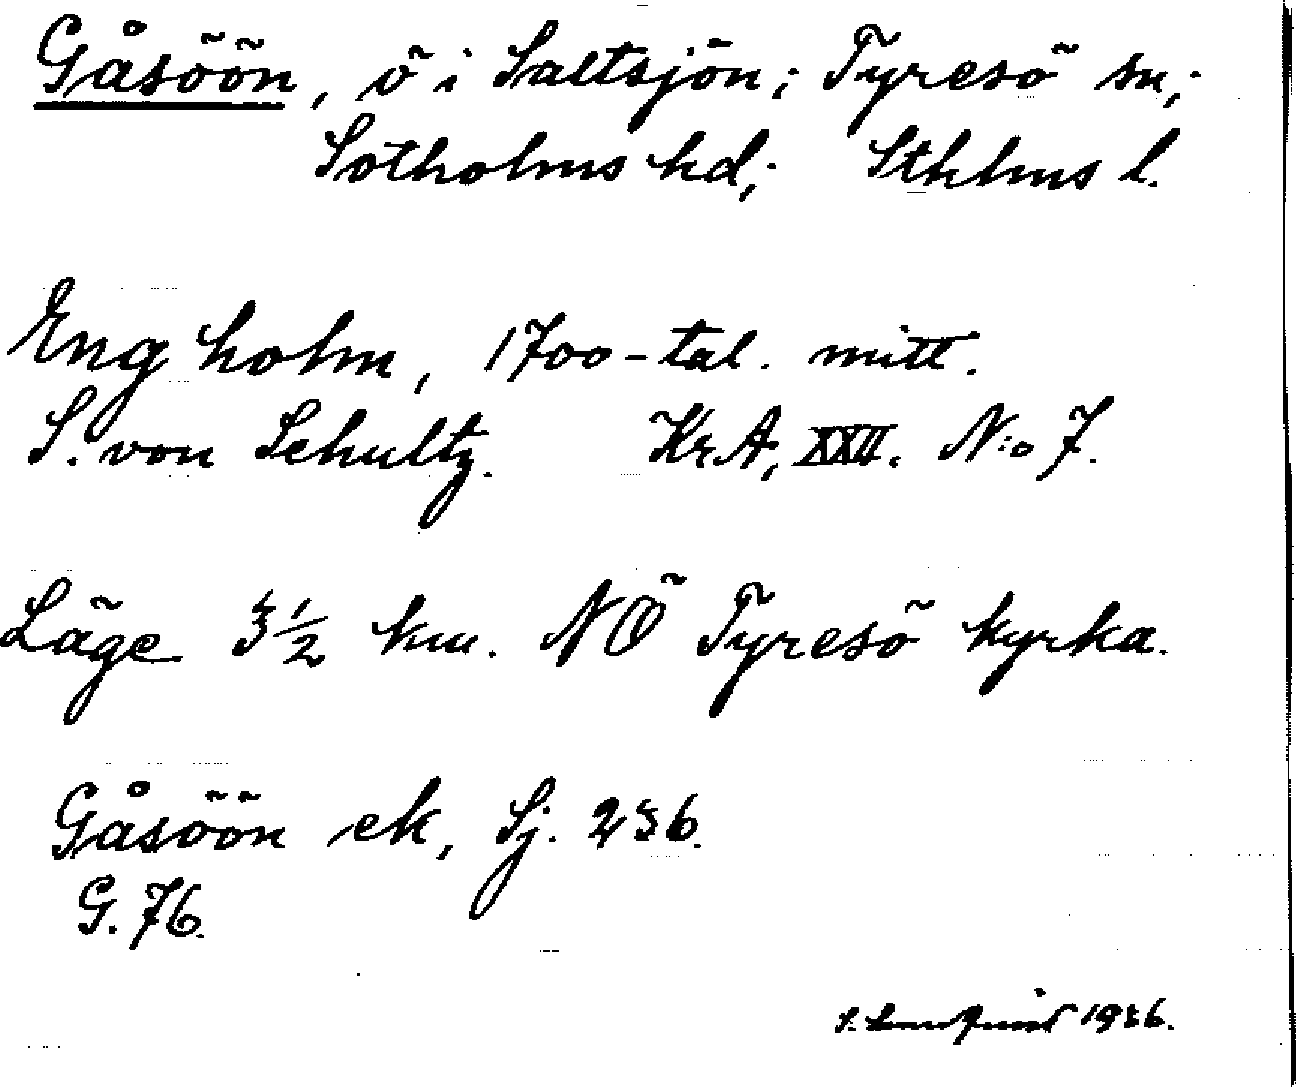 Gåsöön, ö i Saltsjön; Tyresö sn;
Sotholms hd; Sthlms l.
Engholm, 1700-tal. mitt.
S. von Schultz. KrA, XXII. N:o 7.
Läge 3 1/2 km. NÖ Tyresö kyrka.
Gåsöön ek, Sj. 236.
G. 76.
1936.